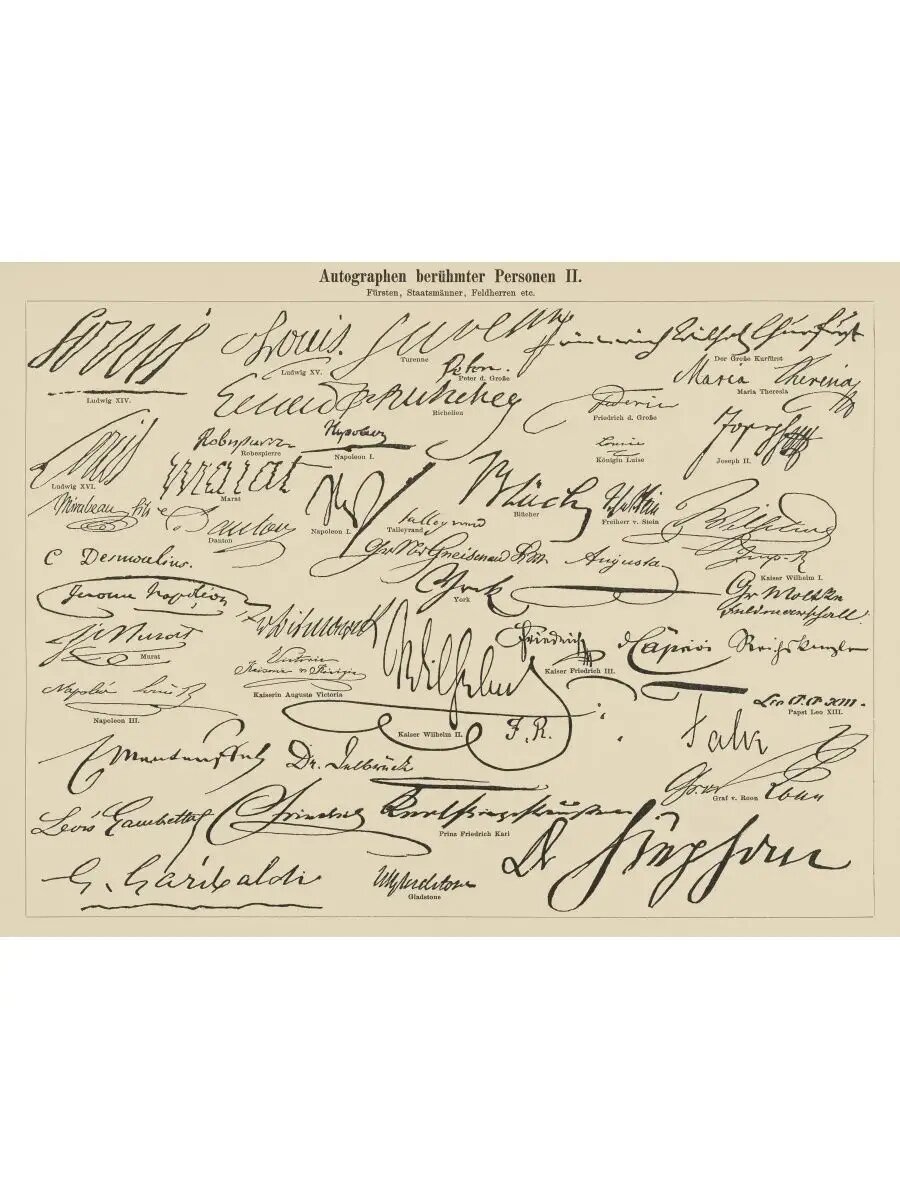 Autographen berühmter Personen II.
Fürsten, Staatsmänner, Feldherren etc.
Louis
Ludwig XIV.
Louis.
Ludwig XV.
Turenne
Peter d. Große
Churfürst
Der Große Kurfürst
Maria Theresia
Maria Theresia
Richelieu
Friedrich d. Große
Louis
Ludwig XVI.
Robespierre
Robespierre
Napoleon I.
Louise
Königin Luise
Joseph II.
Marat
Marat
Mirabeau fils
Danton
Danton
Napoleon I.
Talleyrand
Talleyrand
Blücher
Freiherr v. Stein
Wilhelm
Kaiser Wilhelm I.
C Desmoulins.
Gneisenau
Augusta
York
York
Jerome Napoléon
Gr Moltke
Feldmarschall.
Murat
Murat
v Bismarck
Wilhelm
Kaiser Wilhelm II.
Friedrich
Kaiser Friedrich III.
Caprivi Reichskanzler
Victoria
Kaiserin Auguste Victoria
Napoléon
Napoleon III.
Leo P.P. XIII.
Papst Leo XIII.
F. R.
Falk
Dr. Delbrück
Graf v. Roon
Léon Gambetta
Prinz Friedrich Karl
G. Garibaldi
Gladstone
Dr Simson